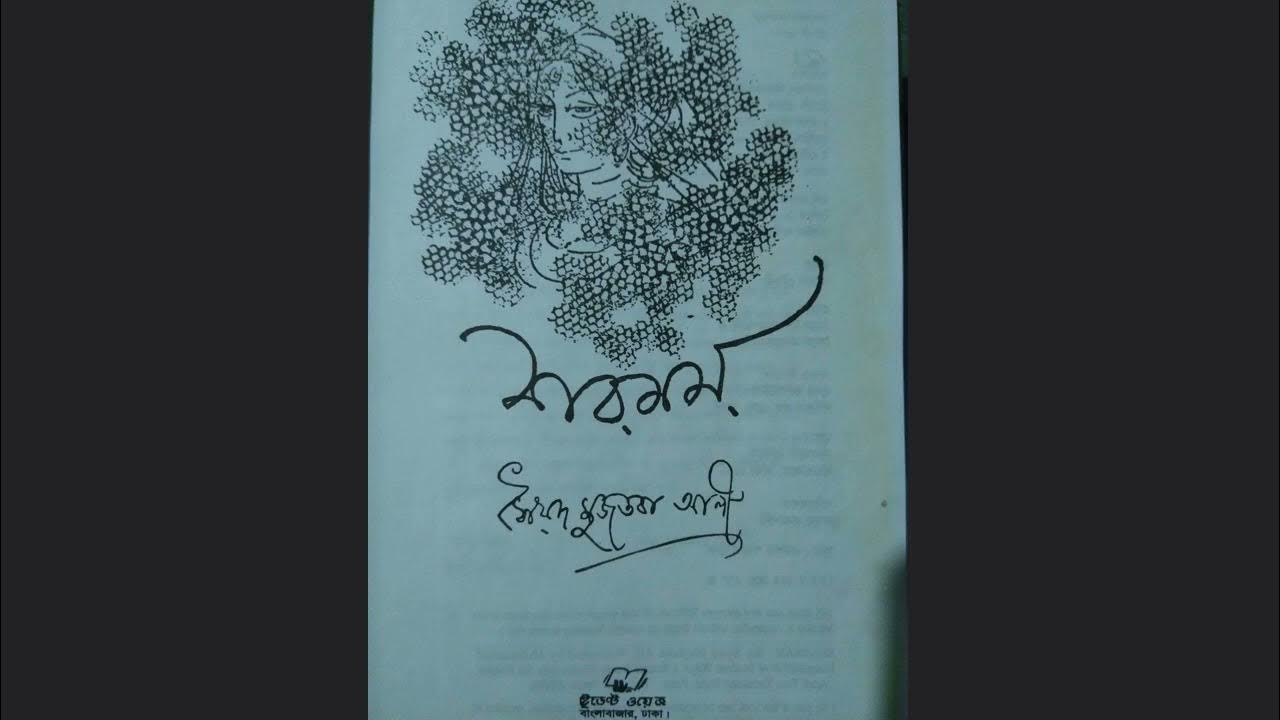 শবনম
সৈয়দ মুজতবা আলী
ষ্টুডেণ্ট ওয়েজ
বাংলাবাজার, ঢাকা।